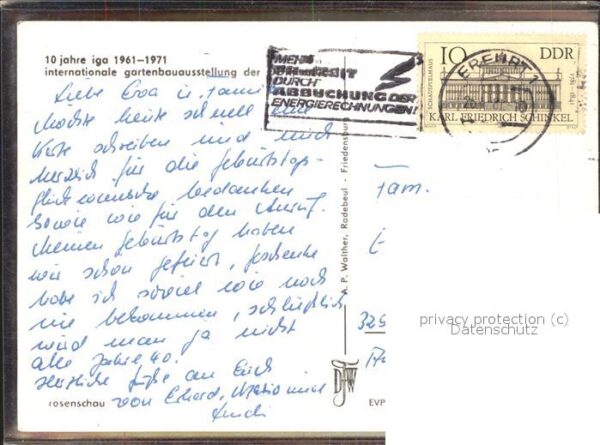 10 jahre iga 1961–1971
internationale gartenbauausstellung der
Liebe Eva u. Familie
Möchte heute schnell eine
Karte schreiben und mich
herzlich für die Geburtstags-
glückwünsche bedanken
sowie wie für den Anruf.
Meinen Geburtstag haben
wir schön gefeiert, Geschenke
habe ich soviel wie noch
nie bekommen, schließlich
wird man ja nicht
alle Jahre 40.
Herzliche Grüße an Euch
von Erhard, und
rosenschau
MEHR
DURCH
ABBUCHUNG DER
ENERGIERECHNUNGEN!
ERFURT 1
10 DDR
SCHAUSPIELHAUS
1781-1841
KARL FRIEDRICH SCHINKEL
A. P. Walther, Radebeul - Friedensburg
Fam.
325
privacy protection (c)
Datenschutz
EVP